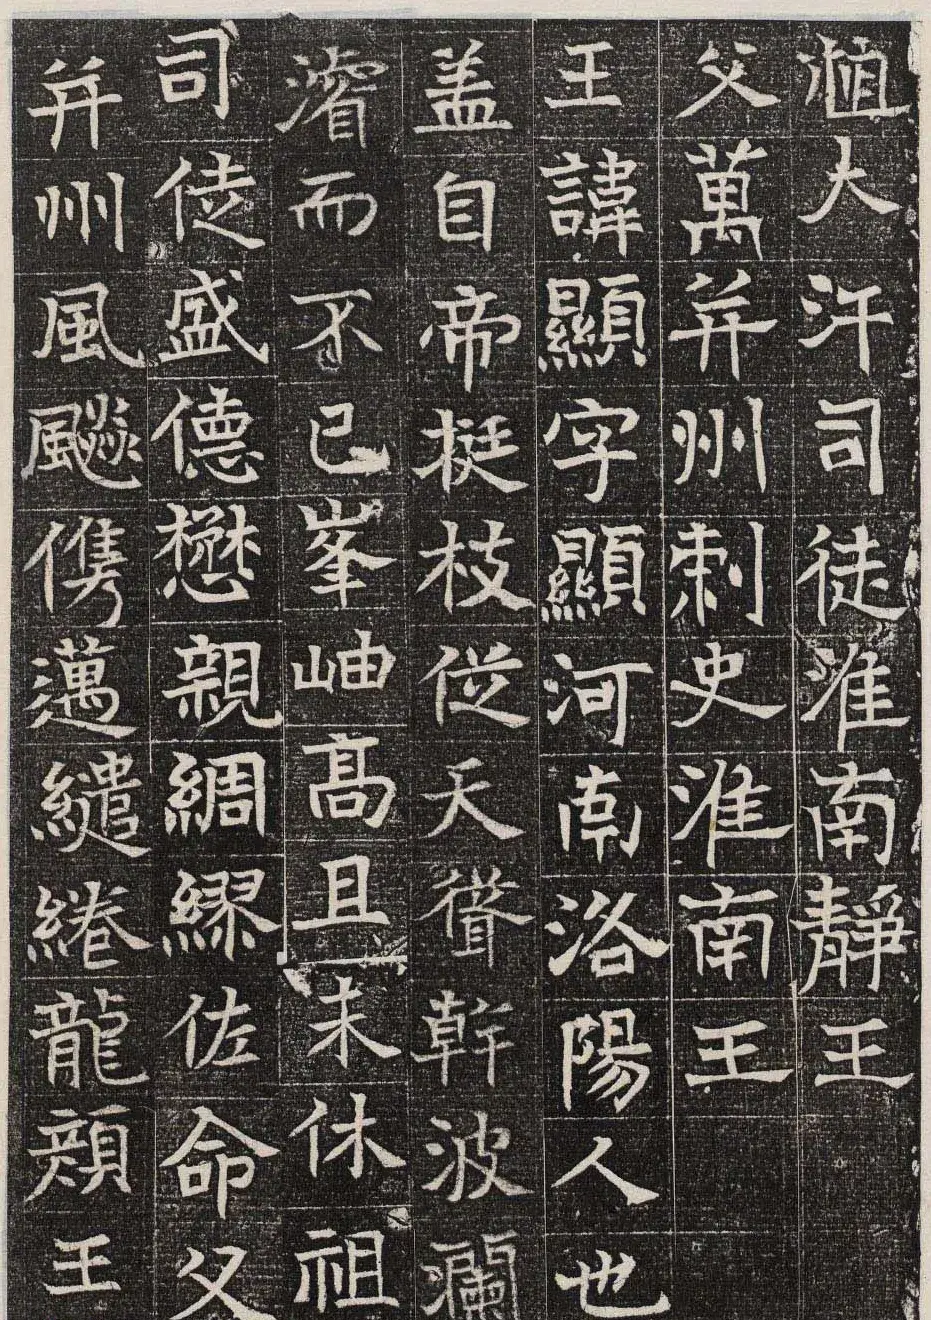 大汗司徒淮南靜王
父萬并州刺史淮南王
王諱顯字顯河南洛陽人也
盖自帝挺枝從天聳幹波瀾
濬而不已峯岫高且未休祖
司徒盛德懋親綢繆佐命父
并州風飈儁邁繾綣龍顏王